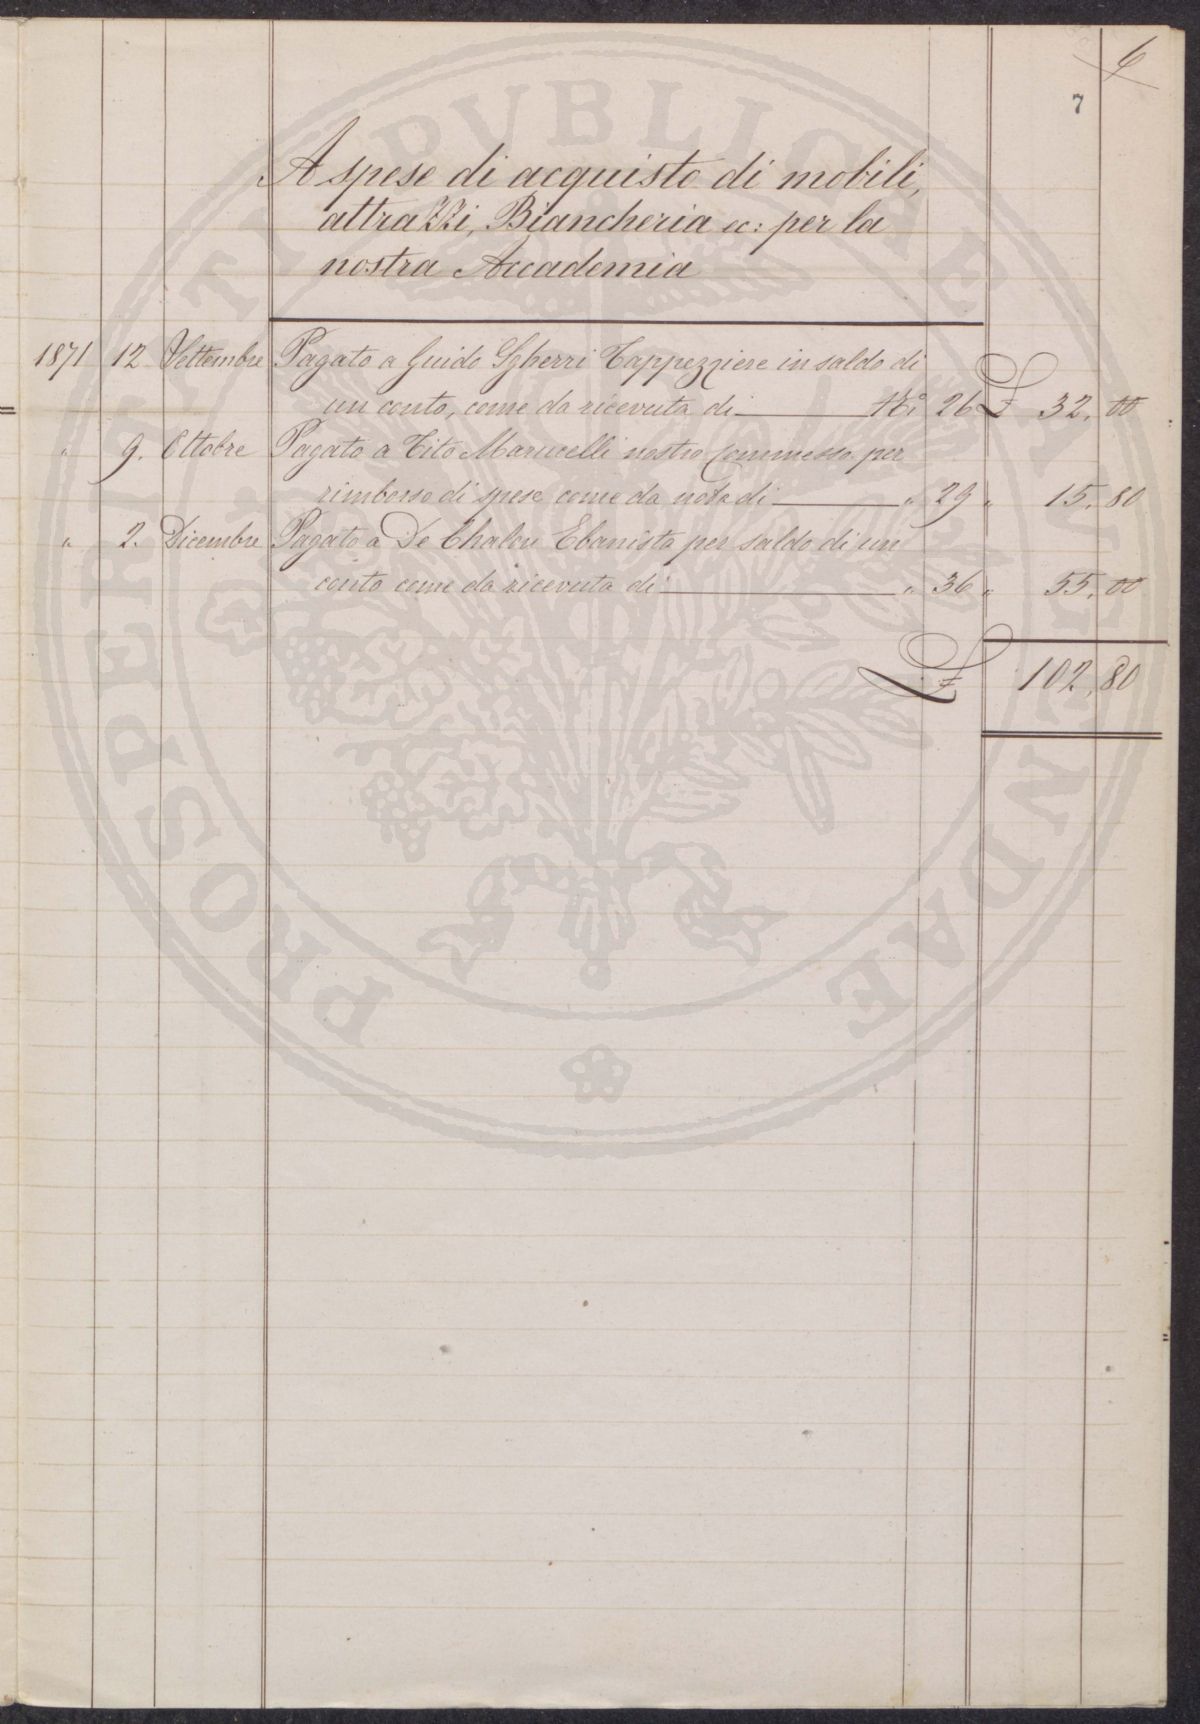 6
7
A spese di acquisto di mobili,
attrazzi, Biancheria ec: per la
nostra Accademia
1871 12 Settembre Pagato a Guido Sgherri Tappezziere in saldo di
un conto, come da ricevuta di N.° 26 £ 32. 00
" 9. Ottobre Pagato a Tito Marucelli nostro Commesso per
rimborso di spese come da nota di " 29 " 15. 80
" 2. Dicembre Pagato a De Ebanista per saldo di un
conto come da ricevuta di " 36 " 55. 00
£ 102, 80
PROSPERITATI PUBLICAE AUGENDAE